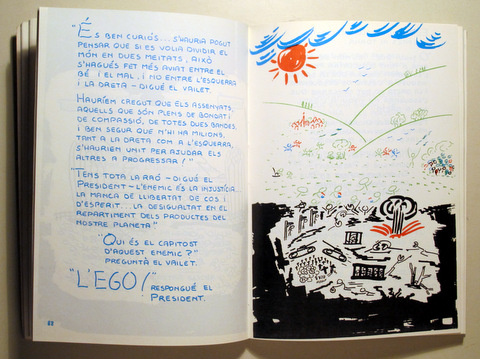 "És ben curiós... s'hauria pogut
pensar que si es volia dividir el
món en dues meitats, això
s'hagués fet més aviat entre el
bé i el mal. I no entre l'esquerra
i la dreta - digué el vailet.
Hauríem cregut que els assenyats,
aquells que són plens de bondat i
de compassió, de totes dues bandes,
i ben segur que n'hi ha milions,
tant a la dreta com a l'esquerra,
s'haurien unit per ajudar els
altres a progressar!"
Tens tota la raó - digué el
President - l'enemic és la injustícia...
la manca de llibertat de cos i
d'esperit... la desigualtat en el
repartiment dels productes del
nostre planeta"
"Qui és el capitost
d'aquest enemic?"
preguntà el vailet.
"L'EGO!" respongué el
President.